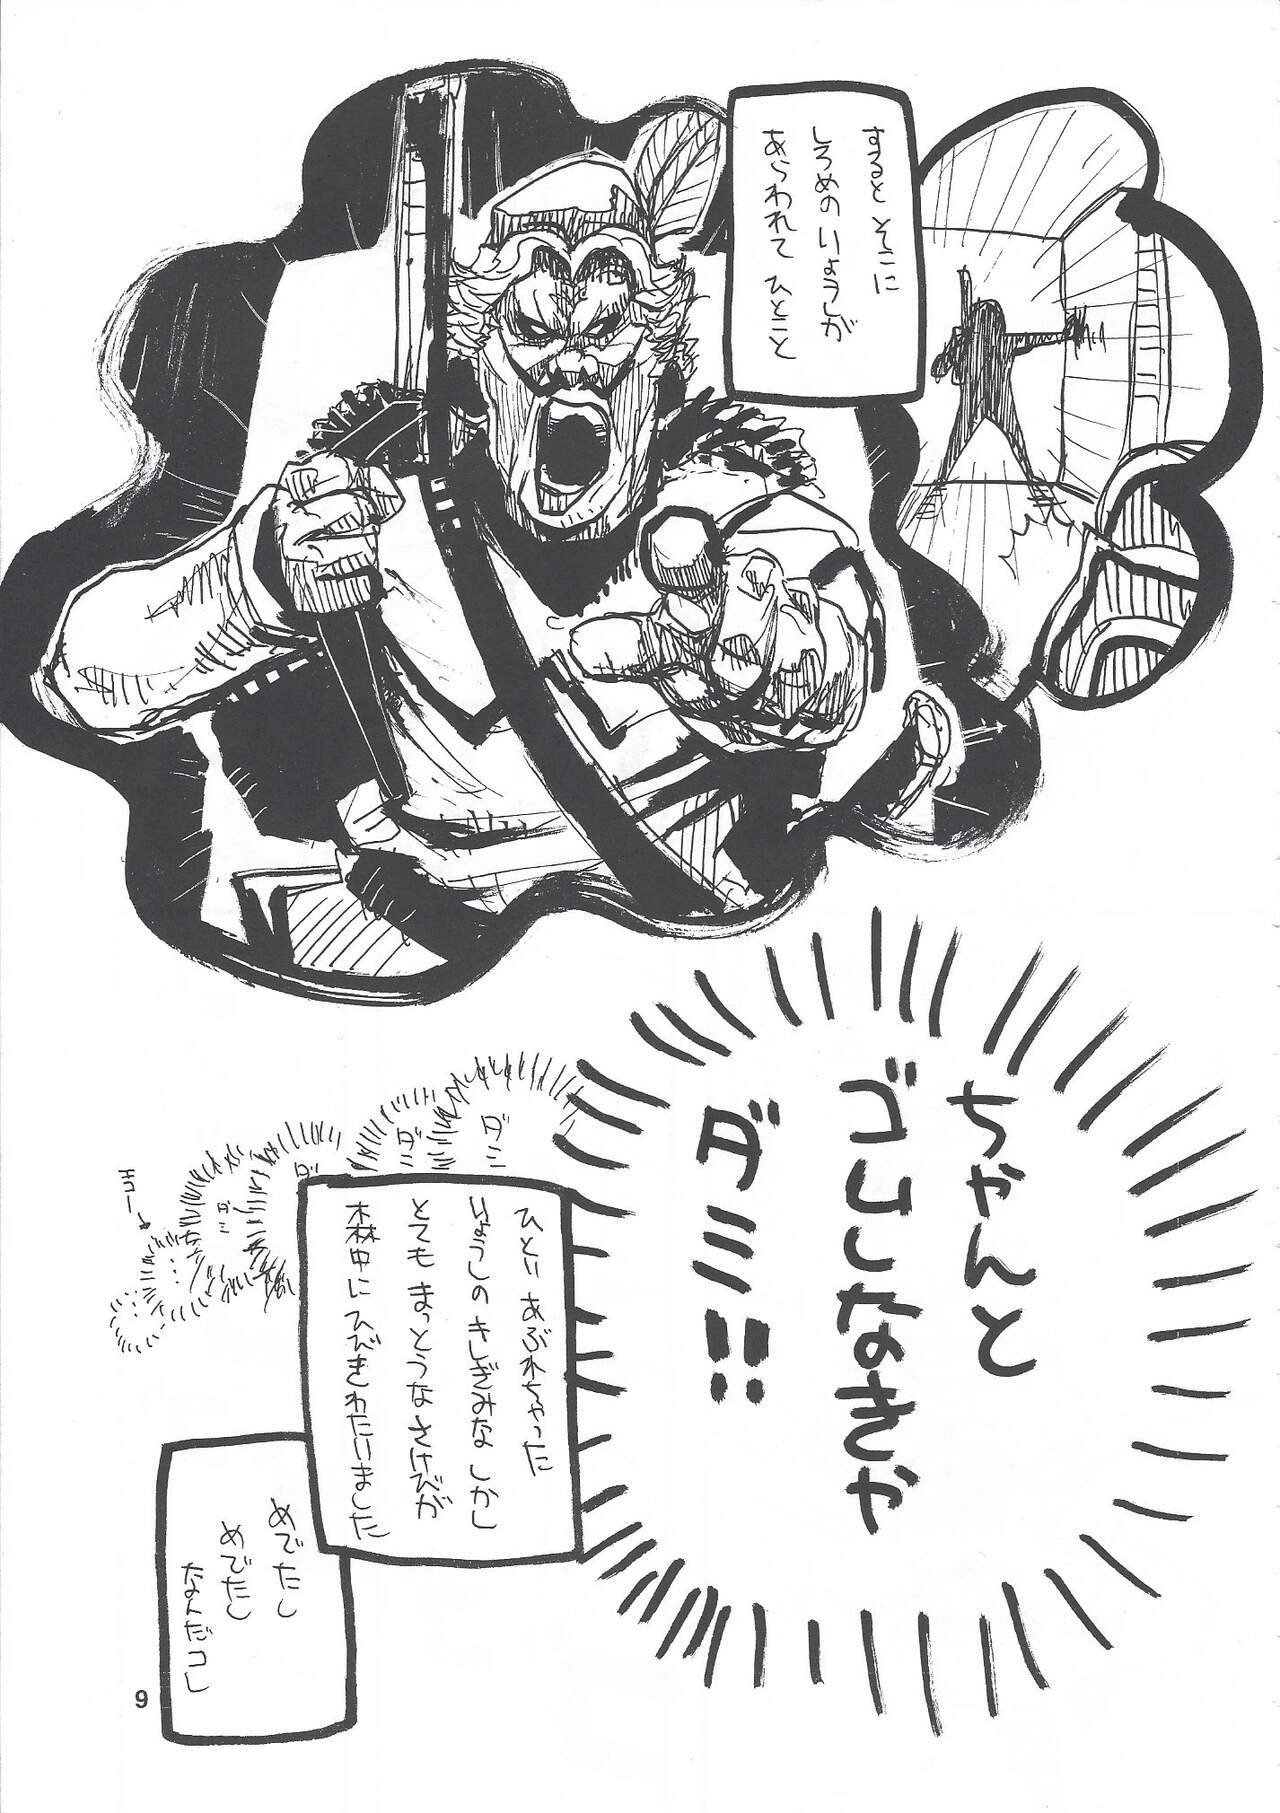 すると そこに
しろめの りょうしが
あらわれて ひとこと
ちゃんと
ゴムしなきゃ
ダミ!!
ダミ
ダミ
ダミ
エコー→
ひとり あぶれちゃった
りょうしの きしぎみな しかし
とても まっとうな さけびが
森中に ひびきわたりました
めでたし
めでたし
なんだコレ
9